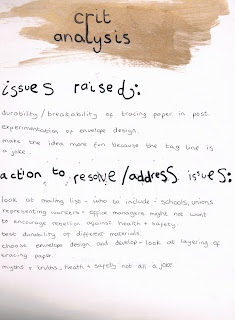 crit
analysis
issues raised:
durability/breakability of tracing paper in post.
experimentation of envelope design.
make the idea more fun because the tag line is
a joke.
action to resolve/address issues:
look at mailing list - who to include - schools, unions
representing workers - office managers might not want
to encourage rebellion against health + safety.
test durability of different materials.
choose envelope design and develop - look at layering of
tracing paper.
myths + truths, heath + safety not all a joke.